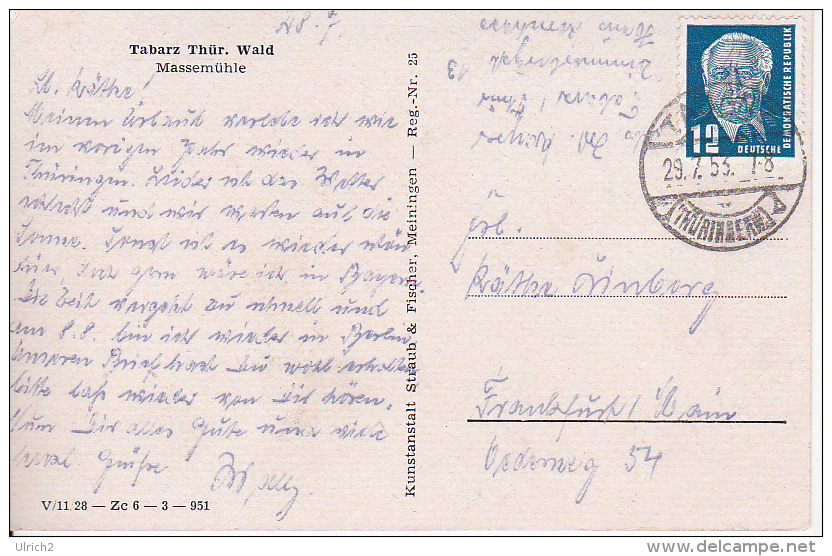 28. 7.
Tabarz Thür. Wald
Massemühle
Lb. Käthe!
Meinen Urlaub verlebe ich wie
im vorigen Jahr wieder in
Thüringen. Leider ist das Wetter
schlecht und wir warten auf die
Sonne. Sonst ist es wieder
doch gern wäre ich in Bayern.
Die Zeit vergeht zu schnell und
am 8.8. bin ich wieder in Berlin.
Unseren Brief hast Du wohl erhalten
bitte laß wieder von Dir hören.
Nun Dir alles Gute und viele
Grüße
Wally.
V/11 28 — Zc 6 — 3 — 951
Kunstanstalt Straub & Fischer, Meiningen — Reg.-Nr. 25
Abs.
Tabarz / Thür
Zimmerbergstr. 13
Haus
12
DEUTSCHE
DEMOKRATISCHE REPUBLIK
29.7.53. 7-8
(THÜRINGERW.)
Frl.
Käthe Limberg
Frankfurt / Main
Oederweg 54
© Ulrich2
delcampe.net